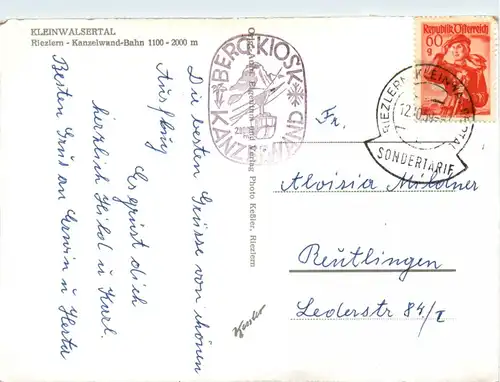 KLEINWALSERTAL
Riezlern - Kanzelwand-Bahn 1100 - 2000 m
Die besten Grüsse von schönen
Ausflug
Es grüst dich
herzlich Hild u Karl.
Besten Gruß an Erwin u Herta
BERG-KIOSK
KANZELWAND
Verlag Photo Keßler, Riezlern
Kessler
Republik Österreich
60
g
RIEZLERN KLEINWALSERTAL
SONDERTARIF
Fr,
Aloisia Mildner
Reutlingen
Lederstr 84/I